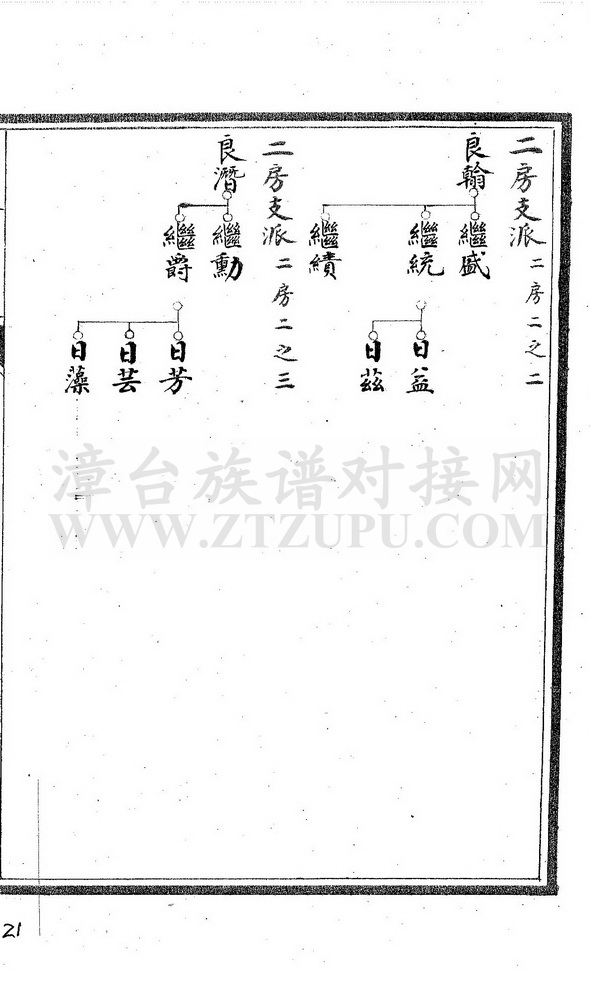 二房支派 二房二之二
良翰
繼盛
繼統
繼績
日益
日茲
二房支派 二房二之三
良潛
繼勳
繼爵
日芳
日芸
日藻
漳台族谱对接网
WWW.ZTZUPU.COM
21